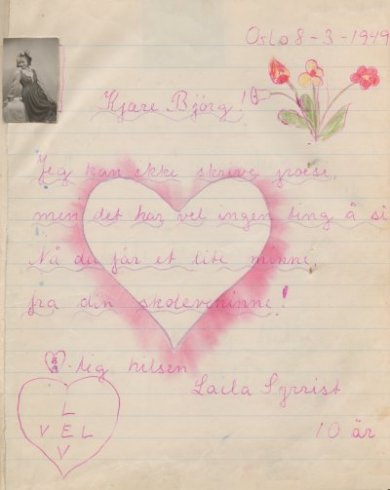 Oslo 8-3-1949
Kjære Bjørg!
Jeg kan ikke skrive poesi,
men det har vel ingen ting å si
Nå du får et lite minne,
fra din skoleveninne!
lig hilsen
Laila Syrrist
10 år
L
V E L
V